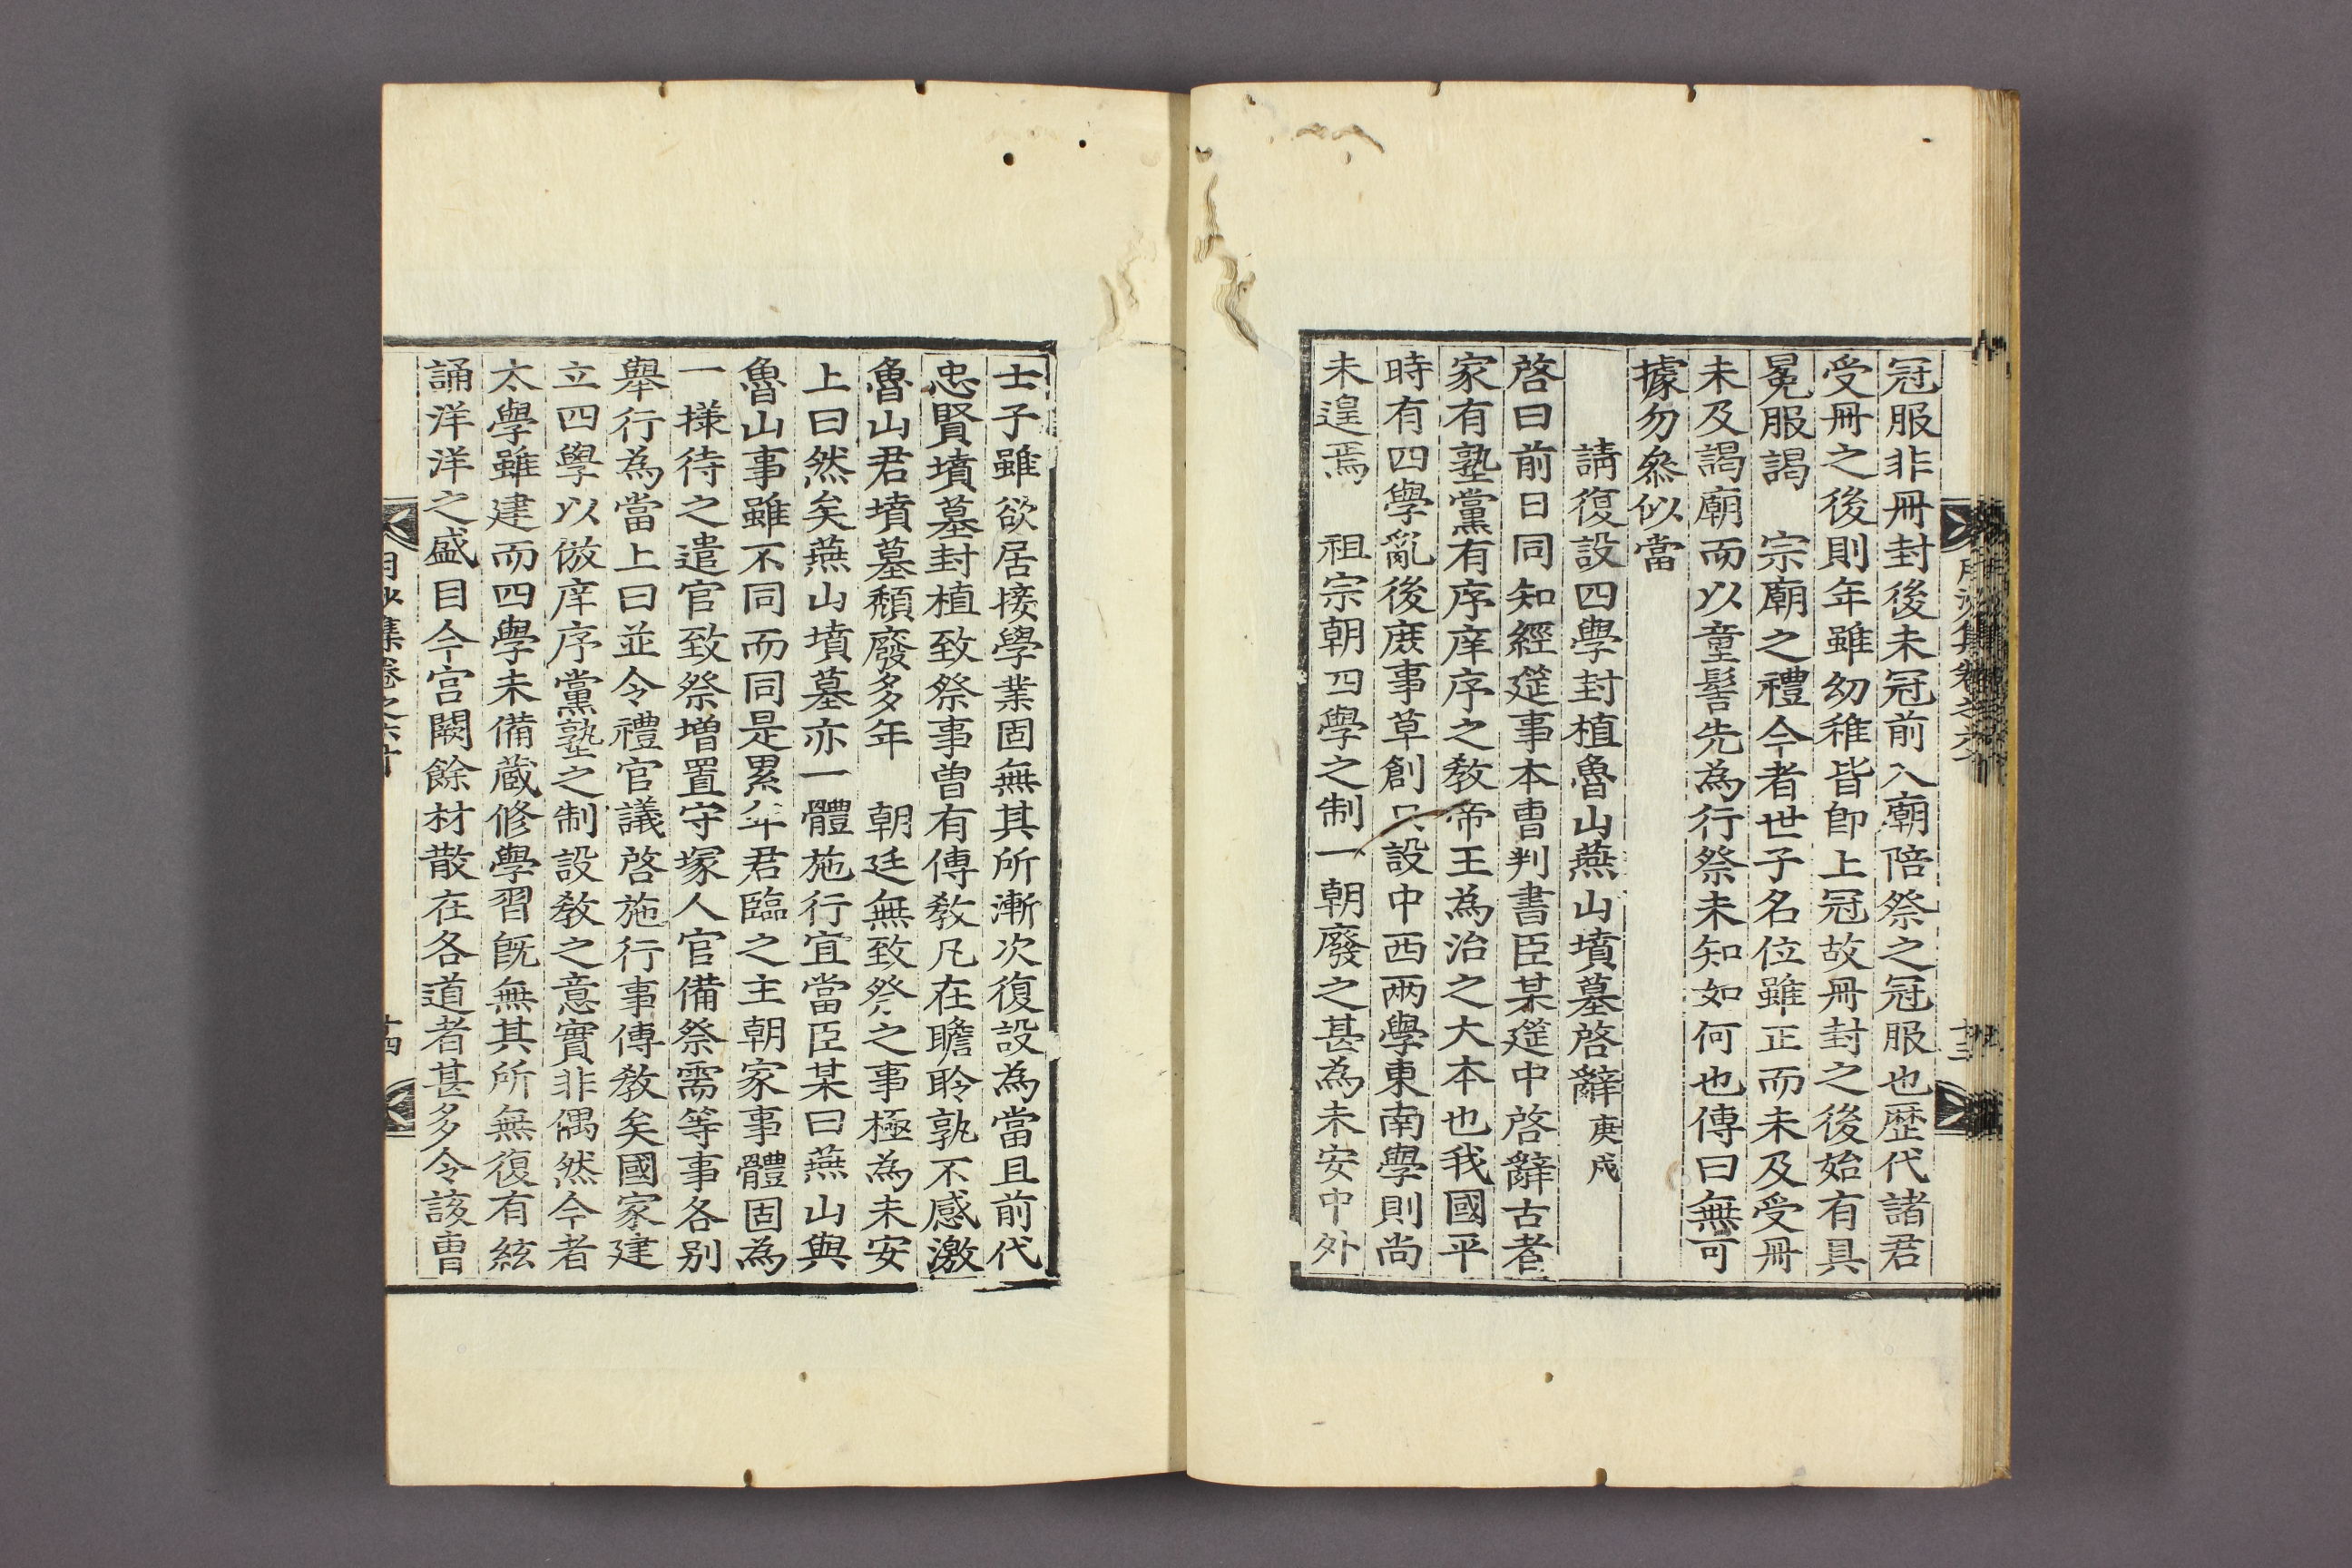 冠服非冊封後未冠前入廟陪祭之冠服也歷代諸君
受冊之後則年雖幼稚皆卽上冠故冊封之後始有具
冕服謁　宗廟之禮今者世子名位雖正而未及受冊
未及謁廟而以童髻先為行祭未知如何也傳曰無可
據勿叅似當
請復設四學封植魯山燕山墳墓啓辭庚戌
啓曰前日同知經筵事本曺判書臣某筵中啓辭古者
家有塾黨有序庠序之敎帝王為治之大本也我國平
時有四學亂後庶事草創只設中西兩學東南學則尚
未遑焉　祖宗朝四學之制一朝廢之甚為未安中外
士子雖欲居接學業固無其所漸次復設為當且前代
忠賢墳墓封植致祭事曾有傳敎凡在瞻聆孰不感激
魯山君墳墓頹廢多年　朝廷無致祭之事極為未安
上曰然矣燕山墳墓亦一體施行宜當臣某曰燕山與
魯山事雖不同而同是累年君臨之主朝家事體固為
一㨾待之遣官致祭增置守塚人官備祭需等事各別
舉行為當上曰並令禮官議啓施行事傳敎矣國家建
立四學以倣庠序黨塾之制設敎之意實非偶然今者
太學雖建而四學未備藏修學習旣無其所無復有絃
誦洋洋之盛目今宮闕餘材散在各道者甚多令該曺
月沙集卷之六十
十四